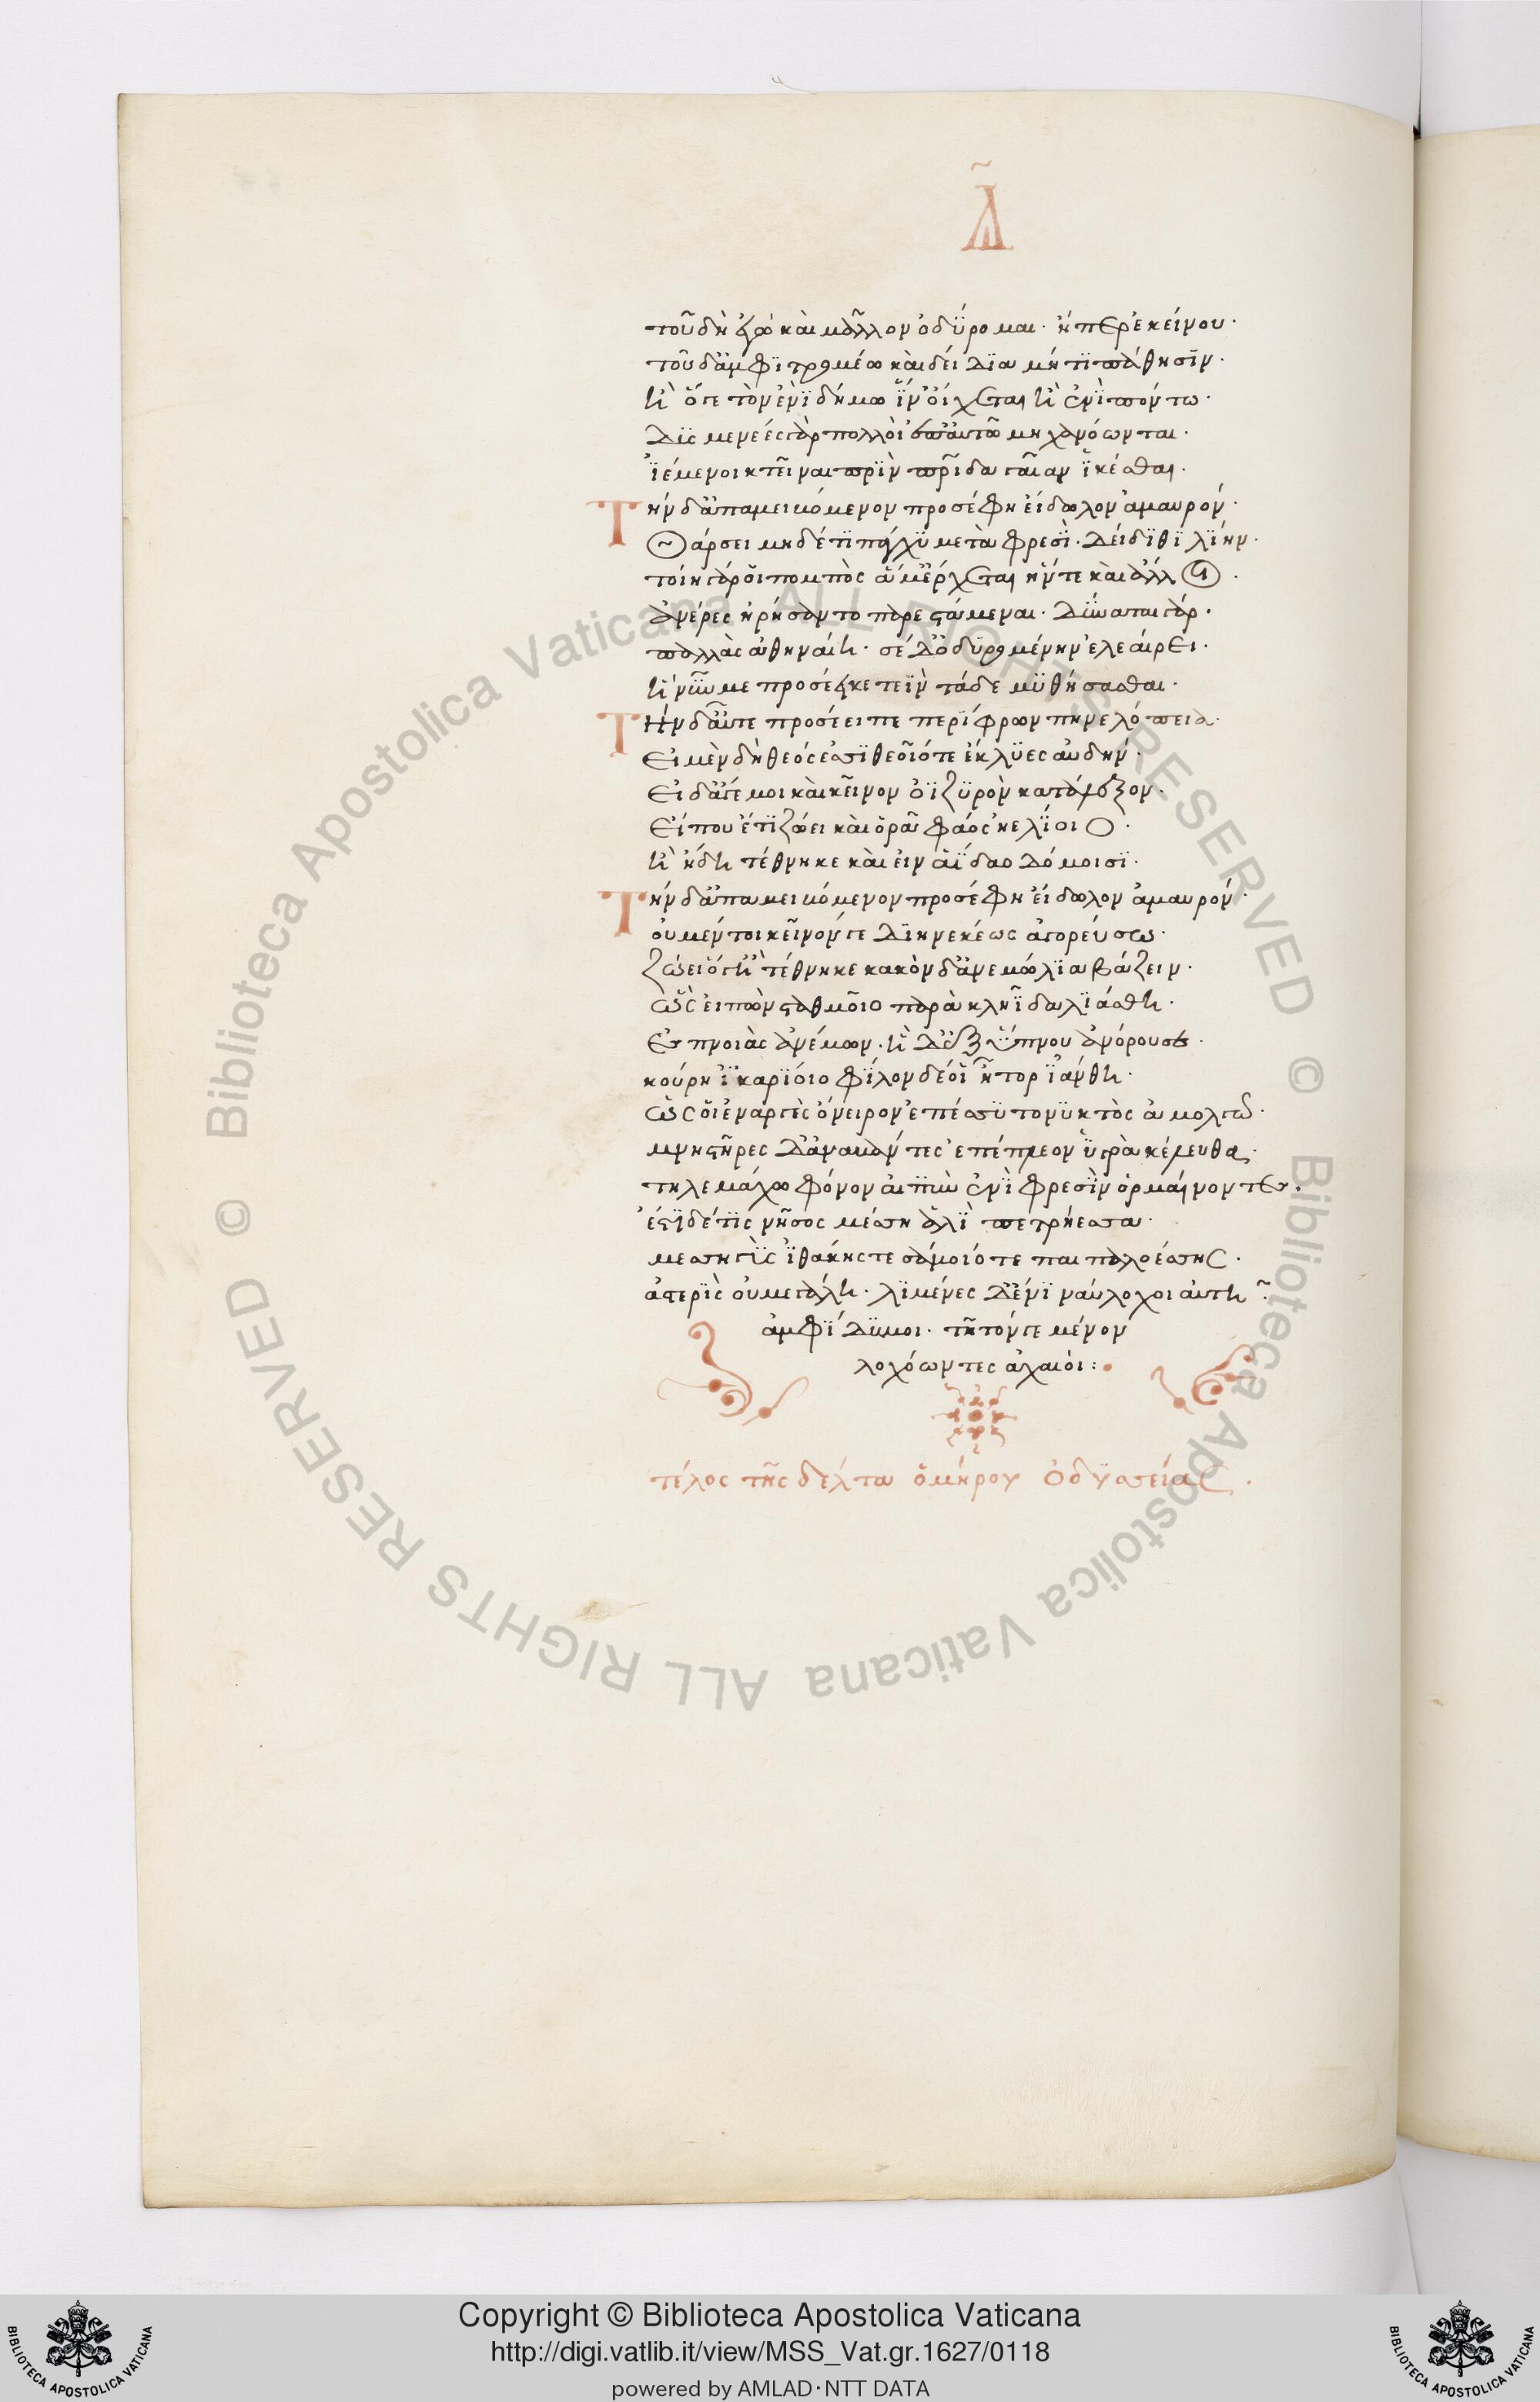 Δ
τοῦ δὴ ἐγὼ καὶ μᾶλλον ὀδύρομαι· ἤπερ ἐκείνου·
τοῦ δ' ἀμφιτρομέω καὶ δείδια μή τι πάθησιν·
ἢ ὅτε τῶν ἐνὶ δήμω ἵν' οἴχεται ἢ ἐνὶ πόντω·
δυσμενέες γὰρ πολλοὶ ἐπ' αὐτῶ μηχανόωνται·
ἱέμενοι κτεῖναι πρὶν πατρίδα γαῖαν ἱκέσθαι·
Τὴν δ' ἀπαμειβόμενον προσέφη εἴδωλον ἀμαυρόν·
Θάρσει μηδέ τι πάγχυ μετὰ φρεσὶ· δείδιθι λίην·
τοίη γάρ οἱ πομπὸς ἅμ' ἔρχεται ἥν τε καὶ ἄλλοι·
ἀνέρες ἠρήσαντο παρεστάμεναι· δύναται γάρ·
παλλὰς ἀθηναίη· σὲ δ' ὀδυρομένην ἐλεαίρει·
ἣ νῦν με προσέηκε τεῒν τάδε μυθήσασθαι·
Τὴν δ' αὖτε προσέειπε περίφρων πηνελόπεια·
Εἰ μὲν δὴ θεός ἐσσι θεοῖό τε ἔκλυες αὐδήν·
Εἰ δ' ἄγε μοι καὶ κεῖνον ὀϊζυρὸν κατάλεξον·
Εἴ που ἔτι ζώει καὶ ὁρᾶ φάος ἠελίοιο·
ἢ ἤδη τέθνηκε καὶ εἰν ἀΐδαο δόμοισι·
Τὴν δ' ἀπαμειβόμενον προσέφη εἴδωλον ἀμαυρόν·
οὐ μέν τοι κεῖνόν γε διηνεκέως ἀγορεύσω·
ζώει ὅγ' ἢ τέθνηκε κακὸν δ' ἀνεμώλια βάζειν·
ὣς εἰπὼν σταθμοῖο παρὰ κληῖδα λιάσθη·
Ἐς πνοιὰς ἀνέμων· ἣ δ' ἐξ ὕπνου ἀνόρουσε·
κούρη ἰκαρίοιο φίλον δέ οἱ ἦτορ ἰάνθη·
ὥς οἱ ἐναργὲς ὄνειρον ἐπέσσυτο νυκτὸς ἀμολγῶ·
μνηστῆρες δ' ἀναβάντες ἐπέπλεον ὑγρὰ κέλευθα·
τηλεμάχω φόνον αἰπὺν ἐνὶ φρεσὶν ὁρμαίνοντες·
ἔστι δέ τις νῆσος μέσση ἁλὶ πετρήεσσα·
μεσσηγὺς ἰθάκης τε σάμοιό τε παιπαλοέσσης·
ἀστερὶς οὐ μεγάλη· λιμένες δ' ἔνι ναύλοχοι αὐτῆ·
ἀμφίδυμοι· τῆ τόν γε μένον
λοχόωντες ἀχαιοί:
τέλος τῆς δέλτα ὁμήρου ὀδυσσείας·
Copyright © Biblioteca Apostolica Vaticana
http://digi.vatlib.it/view/MSS_Vat.gr.1627/0118
powered by AMLAD·NTT DATA
© Biblioteca Apostolica Vaticana ALL RIGHTS RESERVED © Biblioteca Apostolica Vaticana ALL RIGHTS RESERVED
BIBLIOTECA APOSTOLICA VATICANA
BIBLIOTECA APOSTOLICA VATICANA